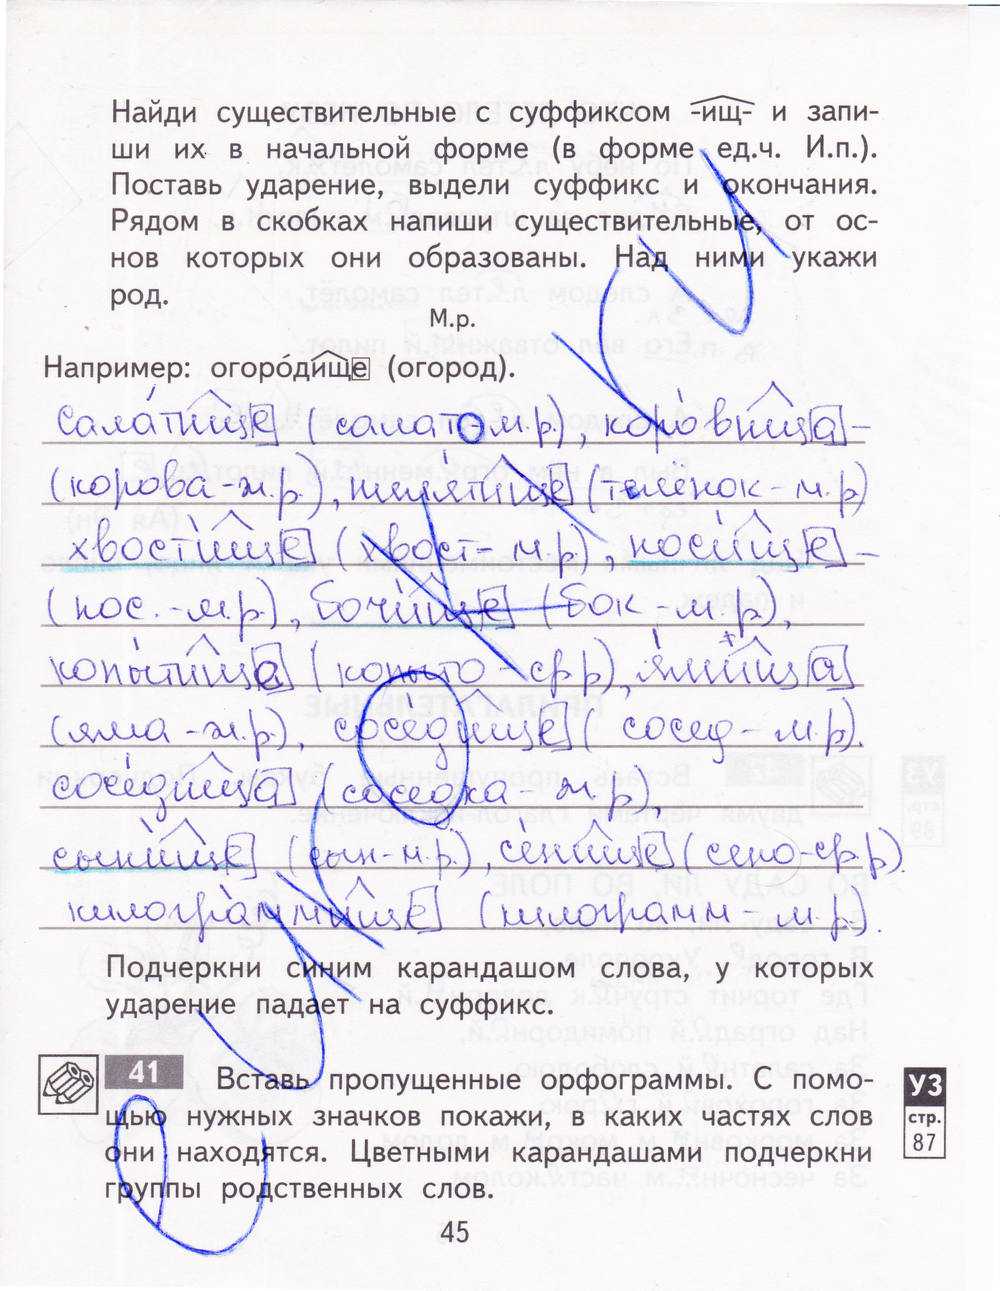 Найди существительные с суффиксом -ищ- и запи-
ши их в начальной форме (в форме ед.ч. И.п.).
Поставь ударение, выдели суффикс и окончания.
Рядом в скобках напиши существительные, от ос-
нов которых они образованы. Над ними укажи
род.
М.р.
Например: огоро́дище (огород).
сала́тище (салат м.р.), коро́вища -
(корова - ж.р), теля́тище (теленок - м.р)
хвости́ще (хвост - м.р), носи́ще -
(нос. - м.р), бочи́ще (бок - м.р),
копы́тища (копыто - ср.р), я́мища
(яма - ж.р), сосе́дище (сосед - м.р).
сосе́дища (соседка - ж.р),
сыни́ще (сын - м.р.), се́нище (сено - ср.р).
килогра́ммище (килограмм - м.р).
Подчеркни синим карандашом слова, у которых
ударение падает на суффикс.
41 Вставь пропущенные орфограммы. С помо-
щью нужных значков покажи, в каких частях слов
они находятся. Цветными карандашами подчеркни
группы родственных слов.
УЗ
стр.
87
45